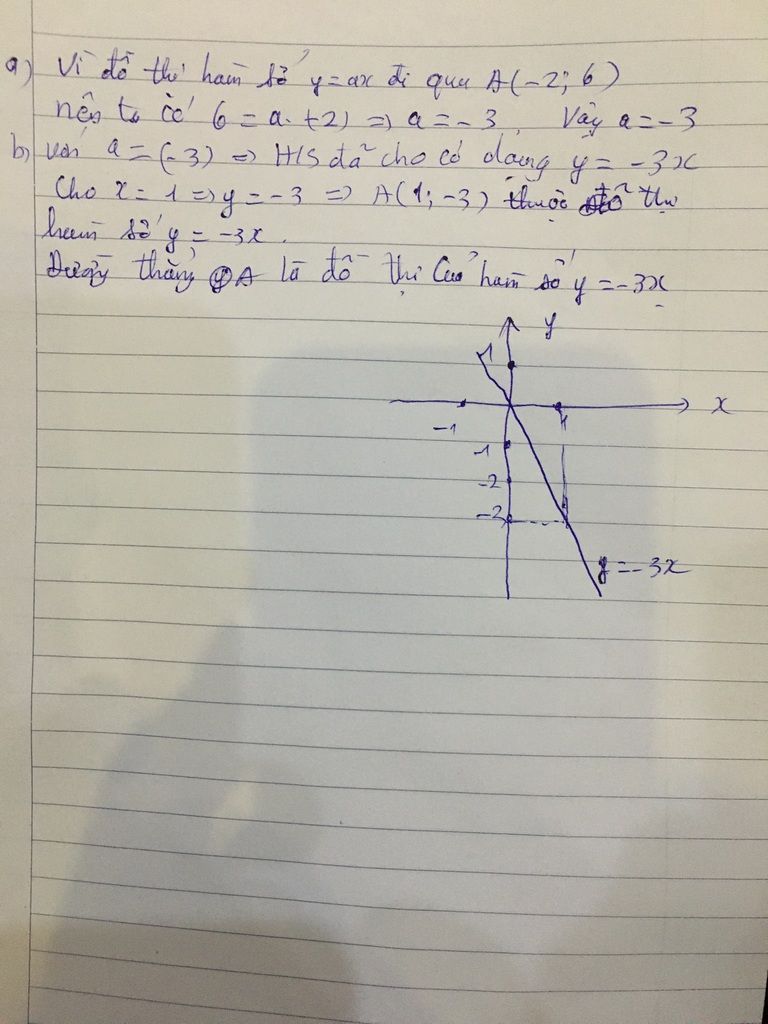 a) Vì đồ thị hàm số y=ax đi qua A(-2; 6)
nên ta có 6 = a.(-2) => a = -3. Vậy a = -3
b) với a = (-3) => H/S đã cho có dạng y = -3x
Cho x = 1 => y = -3 => A(1; -3) thuộc đồ thị
hàm số y = -3x.
Đường thẳng OA là đồ thị của hàm số y = -3x
y
x
-1
1
-1
-2
-3
y = -3x